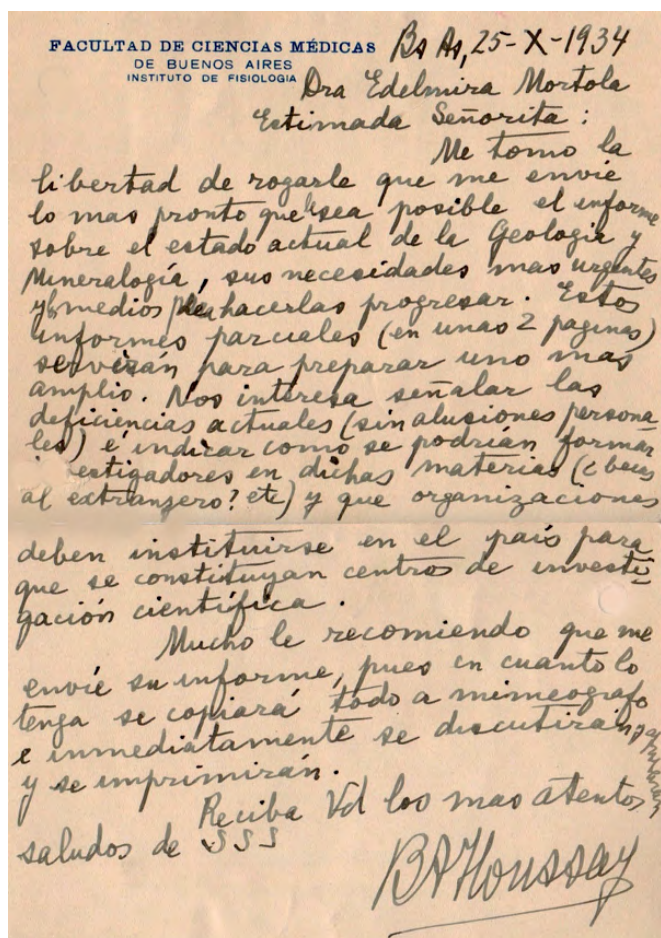 FACULTAD DE CIENCIAS MÉDICAS
DE BUENOS AIRES
INSTITUTO DE FISIOLOGIA
Bs As, 25-X-1934
Dra Edelmira Mortola
Estimada Señorita:
Me tomo la
libertad de rogarle que me envie
lo mas pronto que sea posible el informe
sobre el estado actual de la Geologia y
Mineralogía, sus necesidades mas urgentes
y medios de hacerlas progresar. Estos
informes parciales (en unas 2 paginas)
servirán para preparar uno mas
amplio. Nos interesa señalar las
deficiencias actuales (sin alusiones persona-
les) é indicar como se podrían formar
estigadores en dichas materias (¿becas
al extranjero? etc) y que organizaciones
deben instituirse en el país para
que se constituyan centros de investi-
gación científica.
Mucho le recomiendo que me
envíe su informe, pues en cuanto lo
tenga se copiará todo a mimeografo
e inmediatamente se discutirán
y se imprimirán.
Reciba Vd los mas atentos
saludos de SSS
BAHoussay